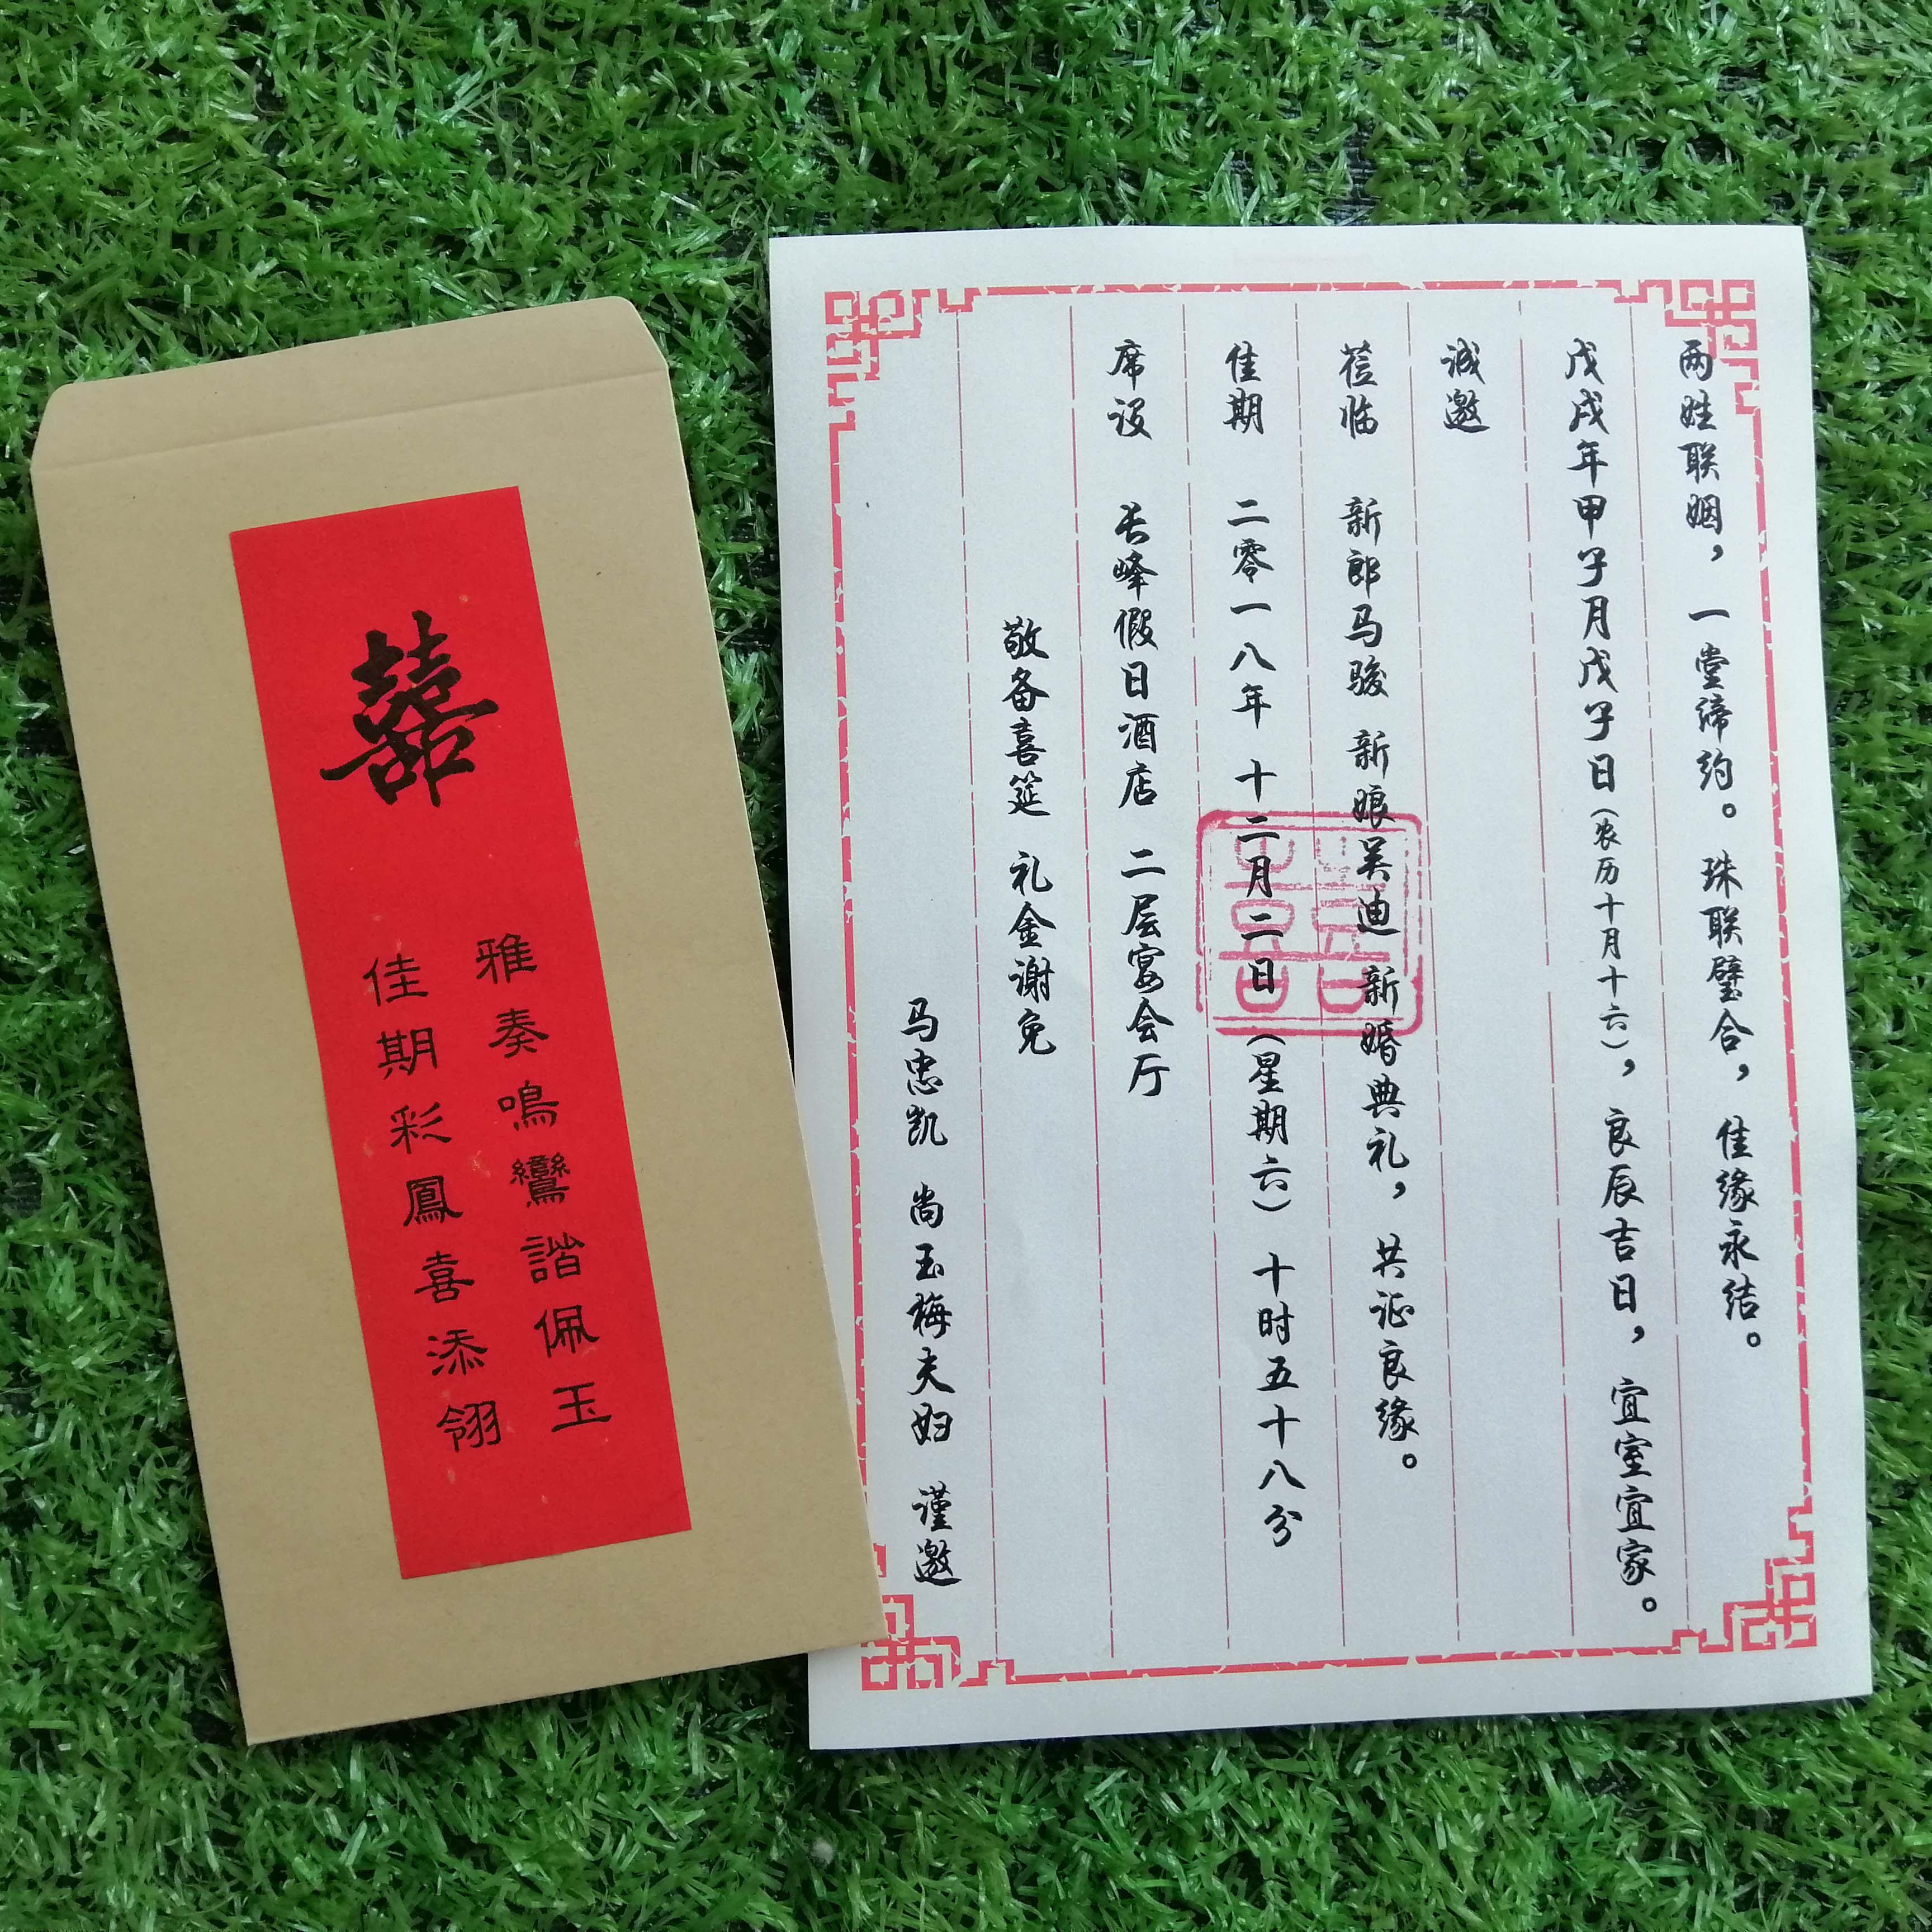 囍
雅奏鳴鸞諧佩玉
佳期彩鳳喜添翎
两姓联姻，一堂缔约。珠联璧合，佳缘永结。
戊戌年甲子月戊子日（农历十月十六），良辰吉日，宜室宜家。
诚邀
莅临 新郎马骏 新娘吴迪 新婚典礼，共证良缘。
佳期 二零一八年 十二月二日（星期六）十时五十八分
席设 长峰假日酒店 二层宴会厅
敬备喜筵 礼金谢免
马忠凯 尚玉梅夫妇 谨邀
囍